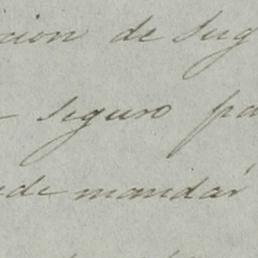 cion de sug
seguro pa
ede mandar